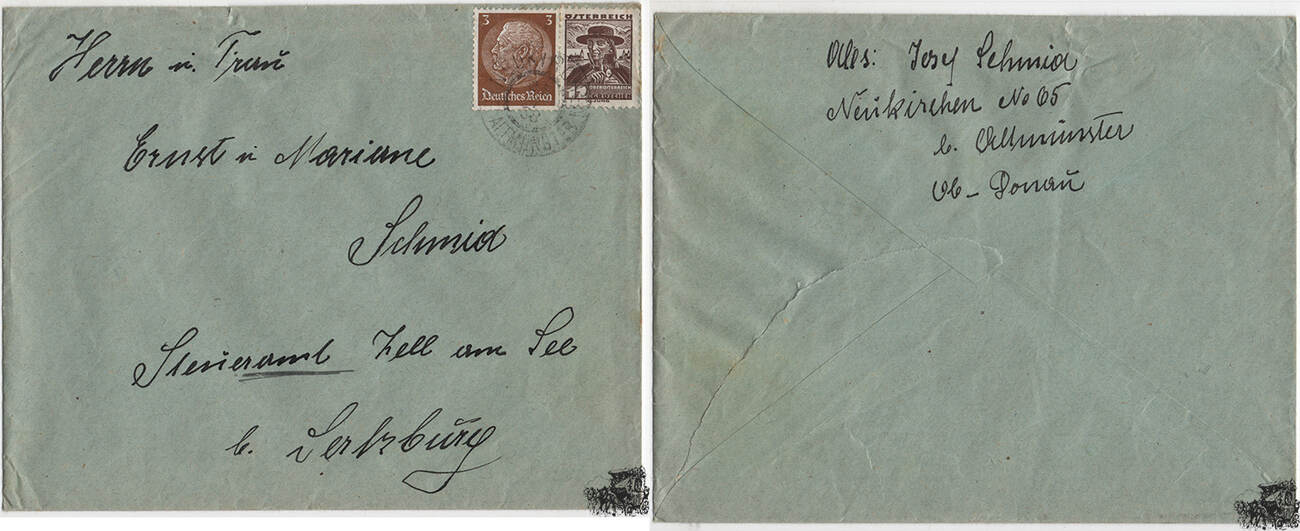 Herrn u. Frau
Ernst u Mariane
Schmid
Steueramt Zell am See
b. Salzburg
3 3
Deutsches Reich
ÖSTERREICH
OBERÖSTERREICH
12 GROSCHEN
38
ALTMÜNSTER
Abs: Josef Schmid
Neukirchen No 65
b. Altmünster
Ob-Donau